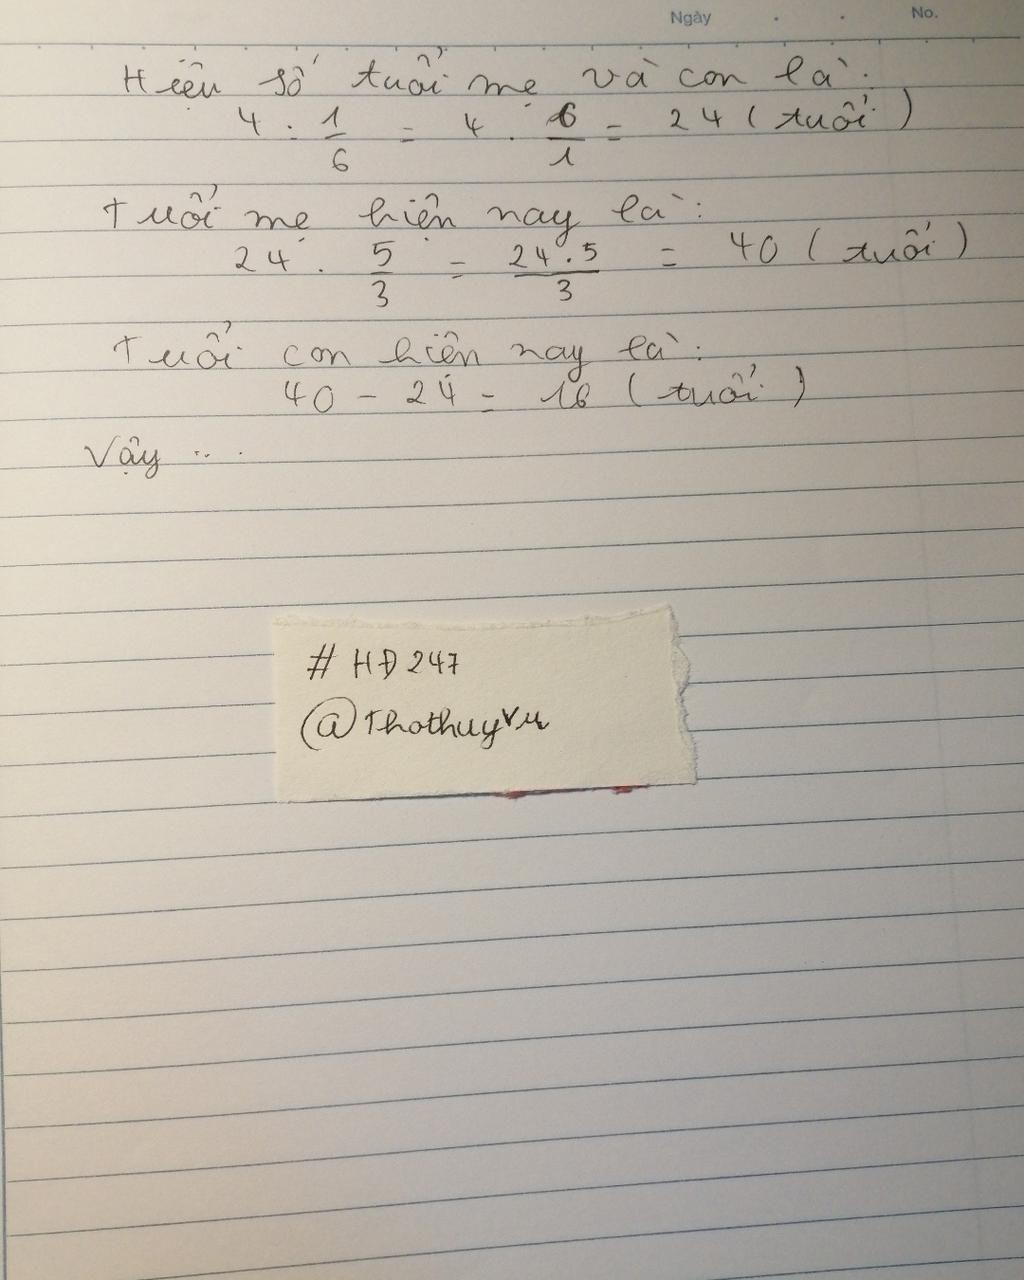 Ngày No.
Hiệu số tuổi mẹ và con là:
4 : 1/6 = 4 . 6/1 = 24 (tuổi)
Tuổi mẹ hiện nay là:
24 . 5/3 = 24.5/3 = 40 (tuổi)
Tuổi con hiện nay là:
40 - 24 = 16 (tuổi)
Vậy ...
# HĐ247
@Thothuyvu